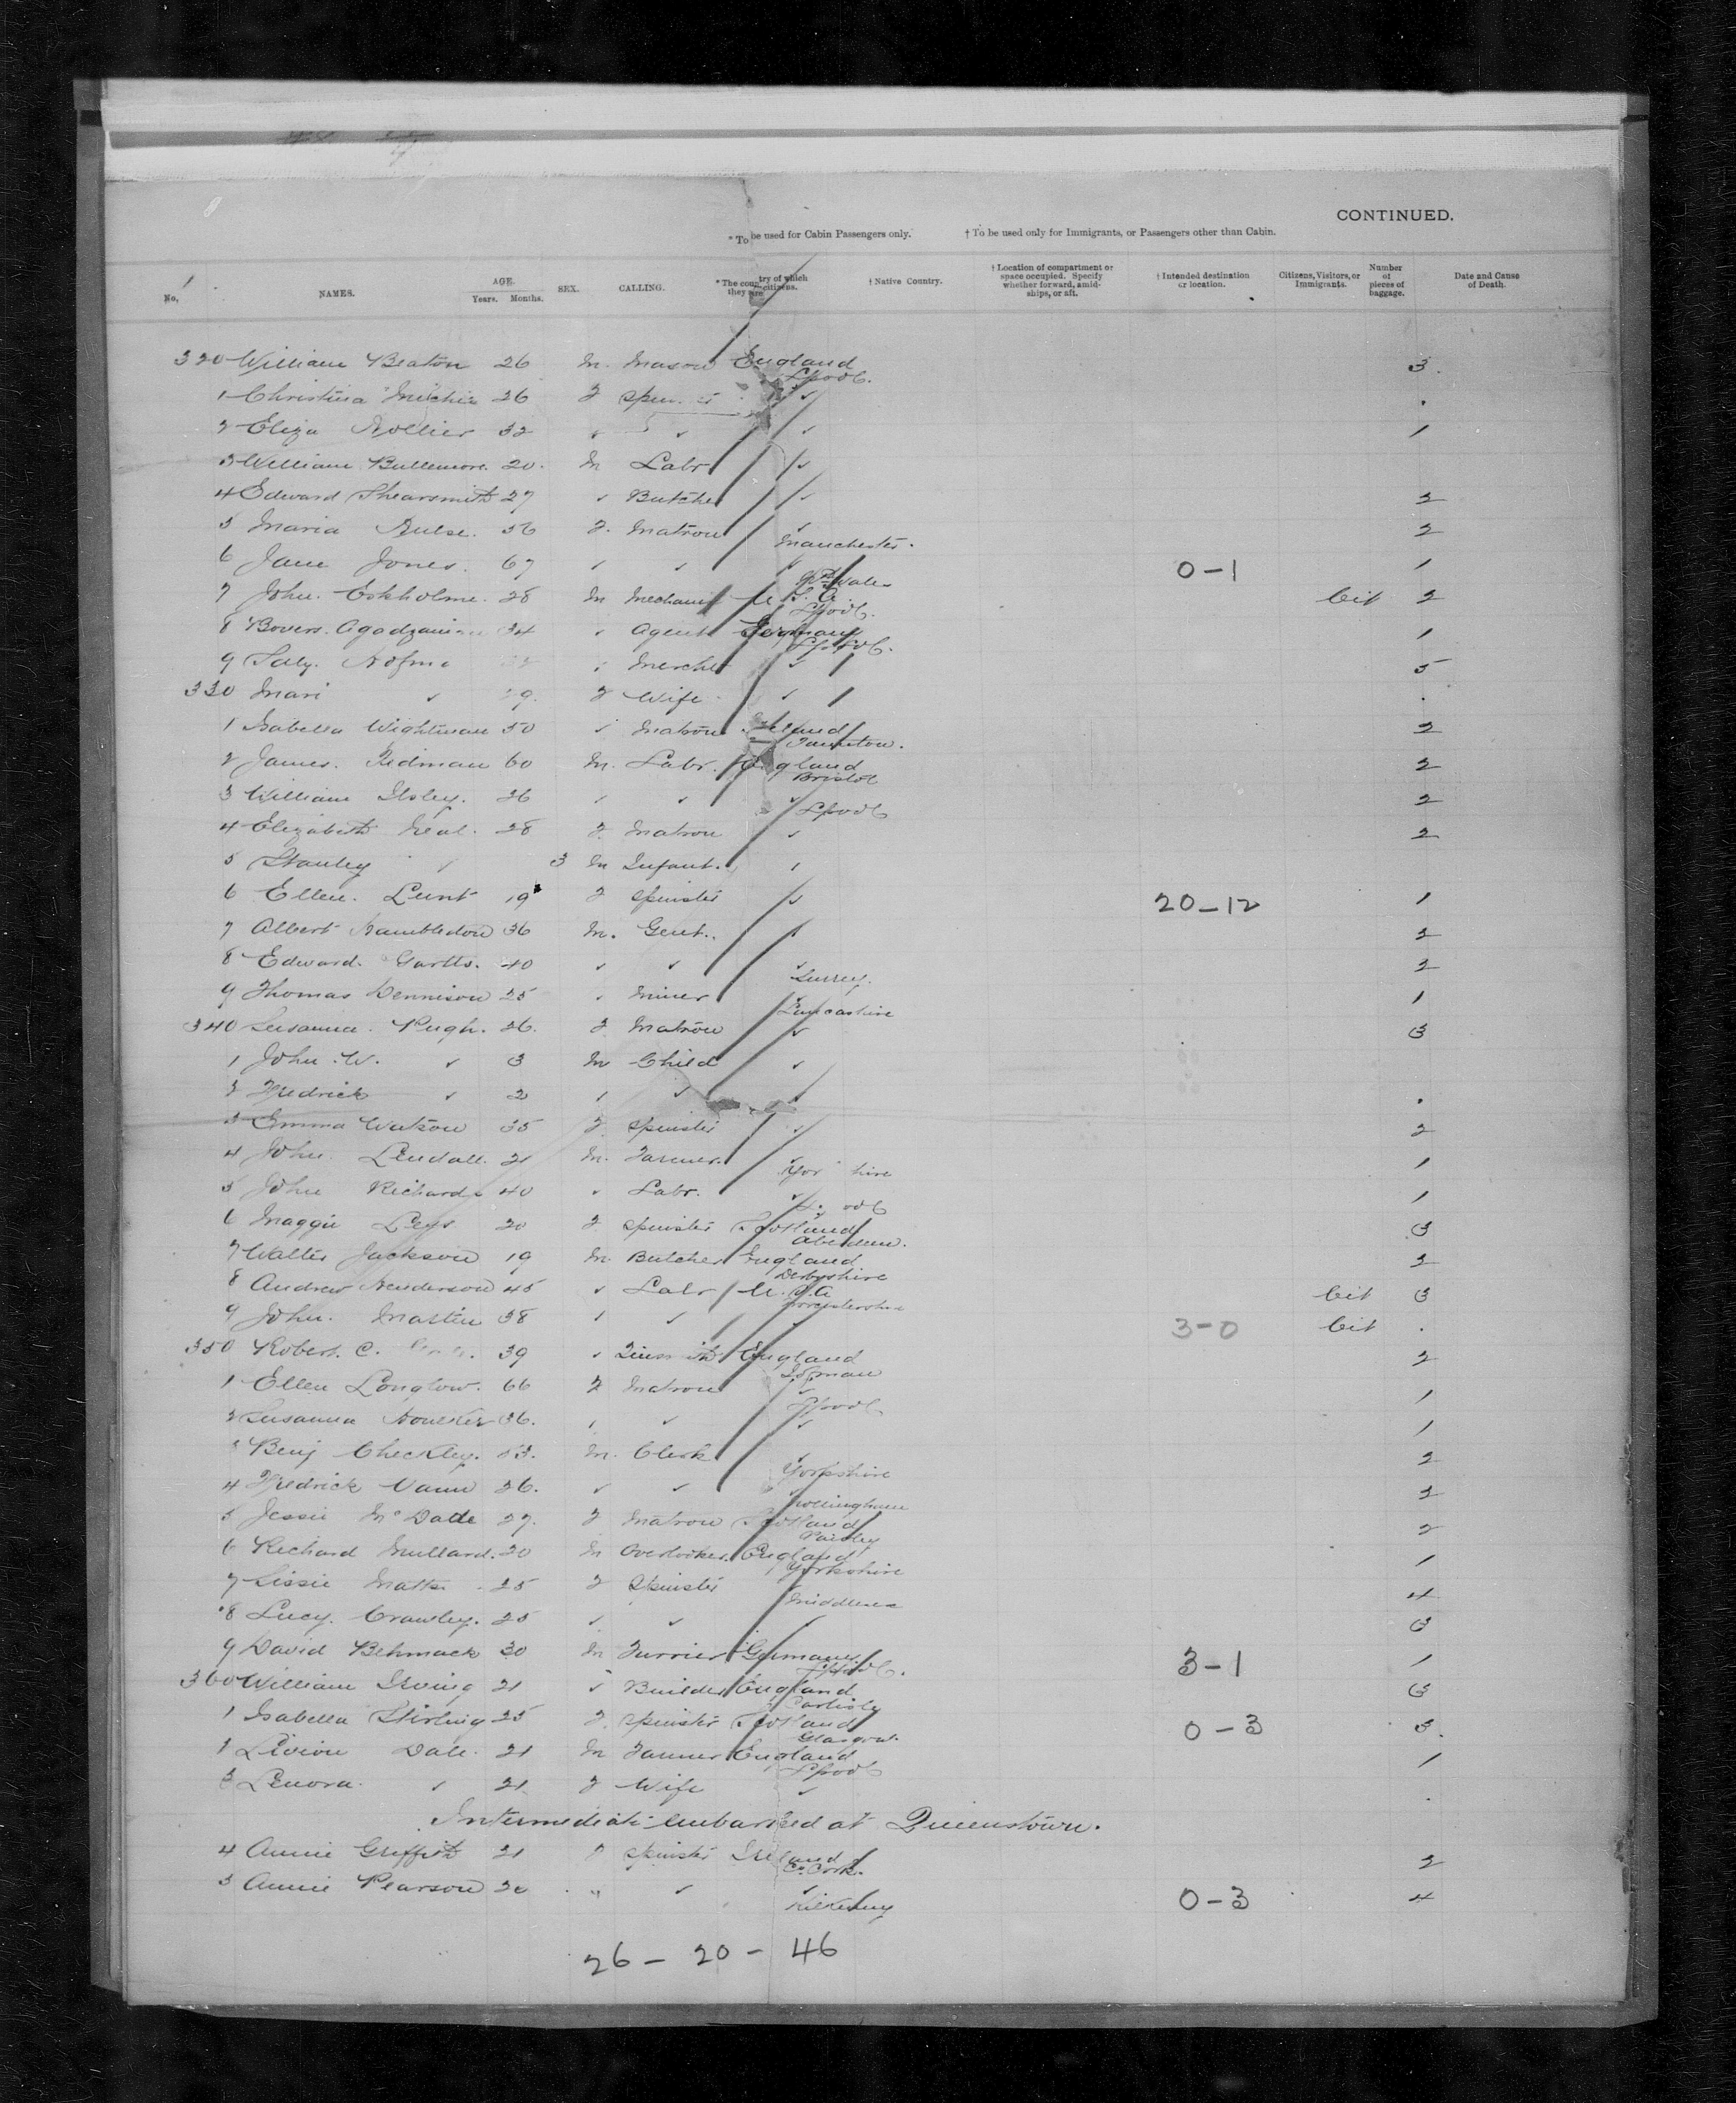 CONTINUED.
* To be used for Cabin Passengers only. † To be used only for Immigrants, or Passengers other than Cabin.
No. NAMES. AGE. Years. Months. SEX. CALLING. * The country of which they are citizens. † Native Country. † Location of compartment or space occupied. Specify whether forward, amidships, or aft. † Intended destination or location. Citizens, Visitors, or Immigrants. Number of pieces of baggage. Date and Cause of Death.
320 William Beaton 26 M. Mason England L'pool. 3.
1 Christina Michie 26 F ✓
2 Eliza 32 ✓ ✓ ✓ 1
3 William Bullimore. 20. M Labr ✓
4 Edward Shearsmith 27 ✓ Butcher ✓ 2
5 Maria Hulse. 56 F. Matron ✓ Manchester. 2
6 Jane Jones. 67 ✓ ✓ ✓ Nth Wales 0-1 1
7 John. Eskholme. 28 M Mechanic U.S.A. L'pool. Cit 2
8 34 ✓ Agent Germany L'pool. 1
9 ✓ Mercht ✓ 5
330 ✓ F Wife ✓ .
1 Isabella Wightman 50 ✓ Matron Taunton. 2
2 James. Tidman 60 M. Labr. England Bristol 2
3 William Ilsley. 36 ✓ ✓ ✓ L'pool 2
4 Elizabeth Neal. 28 F. Matron ✓ 2
5 Stanley ✓ 3 M Infant. ✓
6 Ellen. Lunt 19 F Spinster ✓ 20-12 1
7 Albert Hambledon 36 M. Gent. ✓ 2
8 Edward. 40 ✓ ✓ ✓ Surrey. 2
9 Thomas Dennison 25 ✓ Miner Lancashire 1
340 Susanna. Pugh. 26. F Matron ✓ 3
1 John. W. ✓ 3 M Child ✓
2 Fredrick ✓ 2 ✓ ✓ ✓ .
3 Emma Watson 35 F. Spinster ✓ 2
4 John Lendall. 21 M. Farmer. ✓ 1
5 John Richards 40 ✓ Labr. ✓ 1
6 Maggie Legs 20 F Spinster Scotland Aberdeen. 3
7 Walter Jackson 19 M. Butcher England Derbyshire 2
8 Andrew Henderson 45 ✓ Labr U.S.A Cit 3
9 John. Martin 38 ✓ ✓ ✓ 3-0 Cit .
350 Robert. C. 39 ✓ England 2
1 Ellen Longlow. 66 F Matron ✓ L'pool 1
2 Susanna 36. ✓ ✓ ✓ 1
3 Benj Checkley. 53. M. Clerk ✓ Yorkshire 2
4 Fredrick Vann 26. ✓ ✓ ✓ 2
5 Jessie McDade 27. F Matron Scotland Paisley 2
6 Richard Mullard. 20 M Overlooker. England Yorkshire 1
7 Lissie 25 F Spinster Middlesex 4
8 Lucy. Crawley. 25 ✓ ✓ ✓ 3
9 David Behmack 30 M Furrier Germany L'pool. 3-1 1
360 William Irving 21 ✓ Builder England Carlisle 3
1 Isabella Stirling 25 F. Spinster Scotland Glasgow. 0-3 3.
2 Dale. 21 M Farmer England L'pool 1
3 Lenora. ✓ 21 F Wife ✓ .
Intermediate embarked at Queenstown.
4 Annie Griffith 21 F Spinster Ireland Co. Cork. 2
5 Annie Pearson 20 " ✓ ✓ Kilkenny 0-3 4
26 - 20 - 46